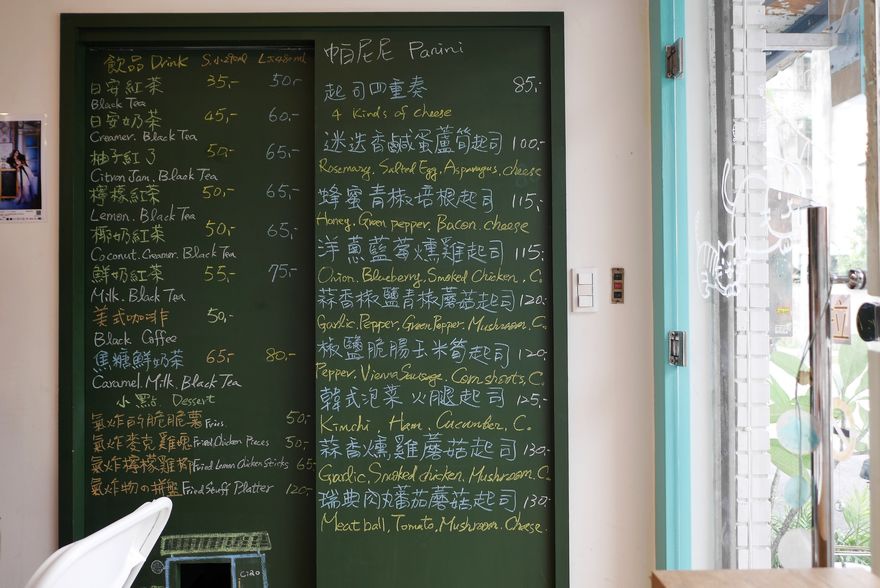 飲品 Drink S.小270ml L.大480ml
日安紅茶 35,- 50,-
Black Tea
日安奶茶 45,- 60,-
Creamer. Black Tea
柚子紅了 50,- 65,-
Citron Jam. Black Tea
檸檬紅茶 50,- 65,-
Lemon. Black Tea
椰奶紅茶 50,- 65,-
Coconut. Creamer. Black Tea
鮮奶紅茶 55,- 75,-
Milk. Black Tea
美式咖啡 50,-
Black Coffee
焦糖鮮奶茶 65,- 80,-
Caramel. Milk. Black Tea
小點. Dessert
氣炸的脆脆薯 Fries. 50,-
氣炸麥克雞塊 Fried Chicken Pieces 50,-
氣炸檸檬雞柳 Fried Lemon Chicken Sticks 65
氣炸物の拼盤 Fried Stuff Platter 120,-
帕尼尼 Panini
起司四重奏 85,-
4 Kinds of cheese
迷迭香鹹蛋蘆筍起司 100,-
Rosemary. Salted Egg. Asparagus. cheese
蜂蜜青椒培根起司 115,-
Honey. Green pepper. Bacon. cheese
洋蔥藍莓燻雞起司 115,-
Onion. Blueberry. Smoked Chicken. C.
蒜香椒鹽青椒蘑菇起司 120,-
Garlic. Pepper. Green Pepper. Mushroom. C.
椒鹽脆腸玉米筍起司 120,-
Pepper. Vienna Sausage. Corn shoots. C.
韓式泡菜火腿起司 125,-
Kimchi. Ham. Cucumber. C.
蒜香燻雞蘑菇起司 130,-
Garlic. Smoked chicken. Mushroom. C.
瑞典肉丸蕃茄蘑菇起司 130,-
Meat ball, Tomato, Mushroom. Cheese.